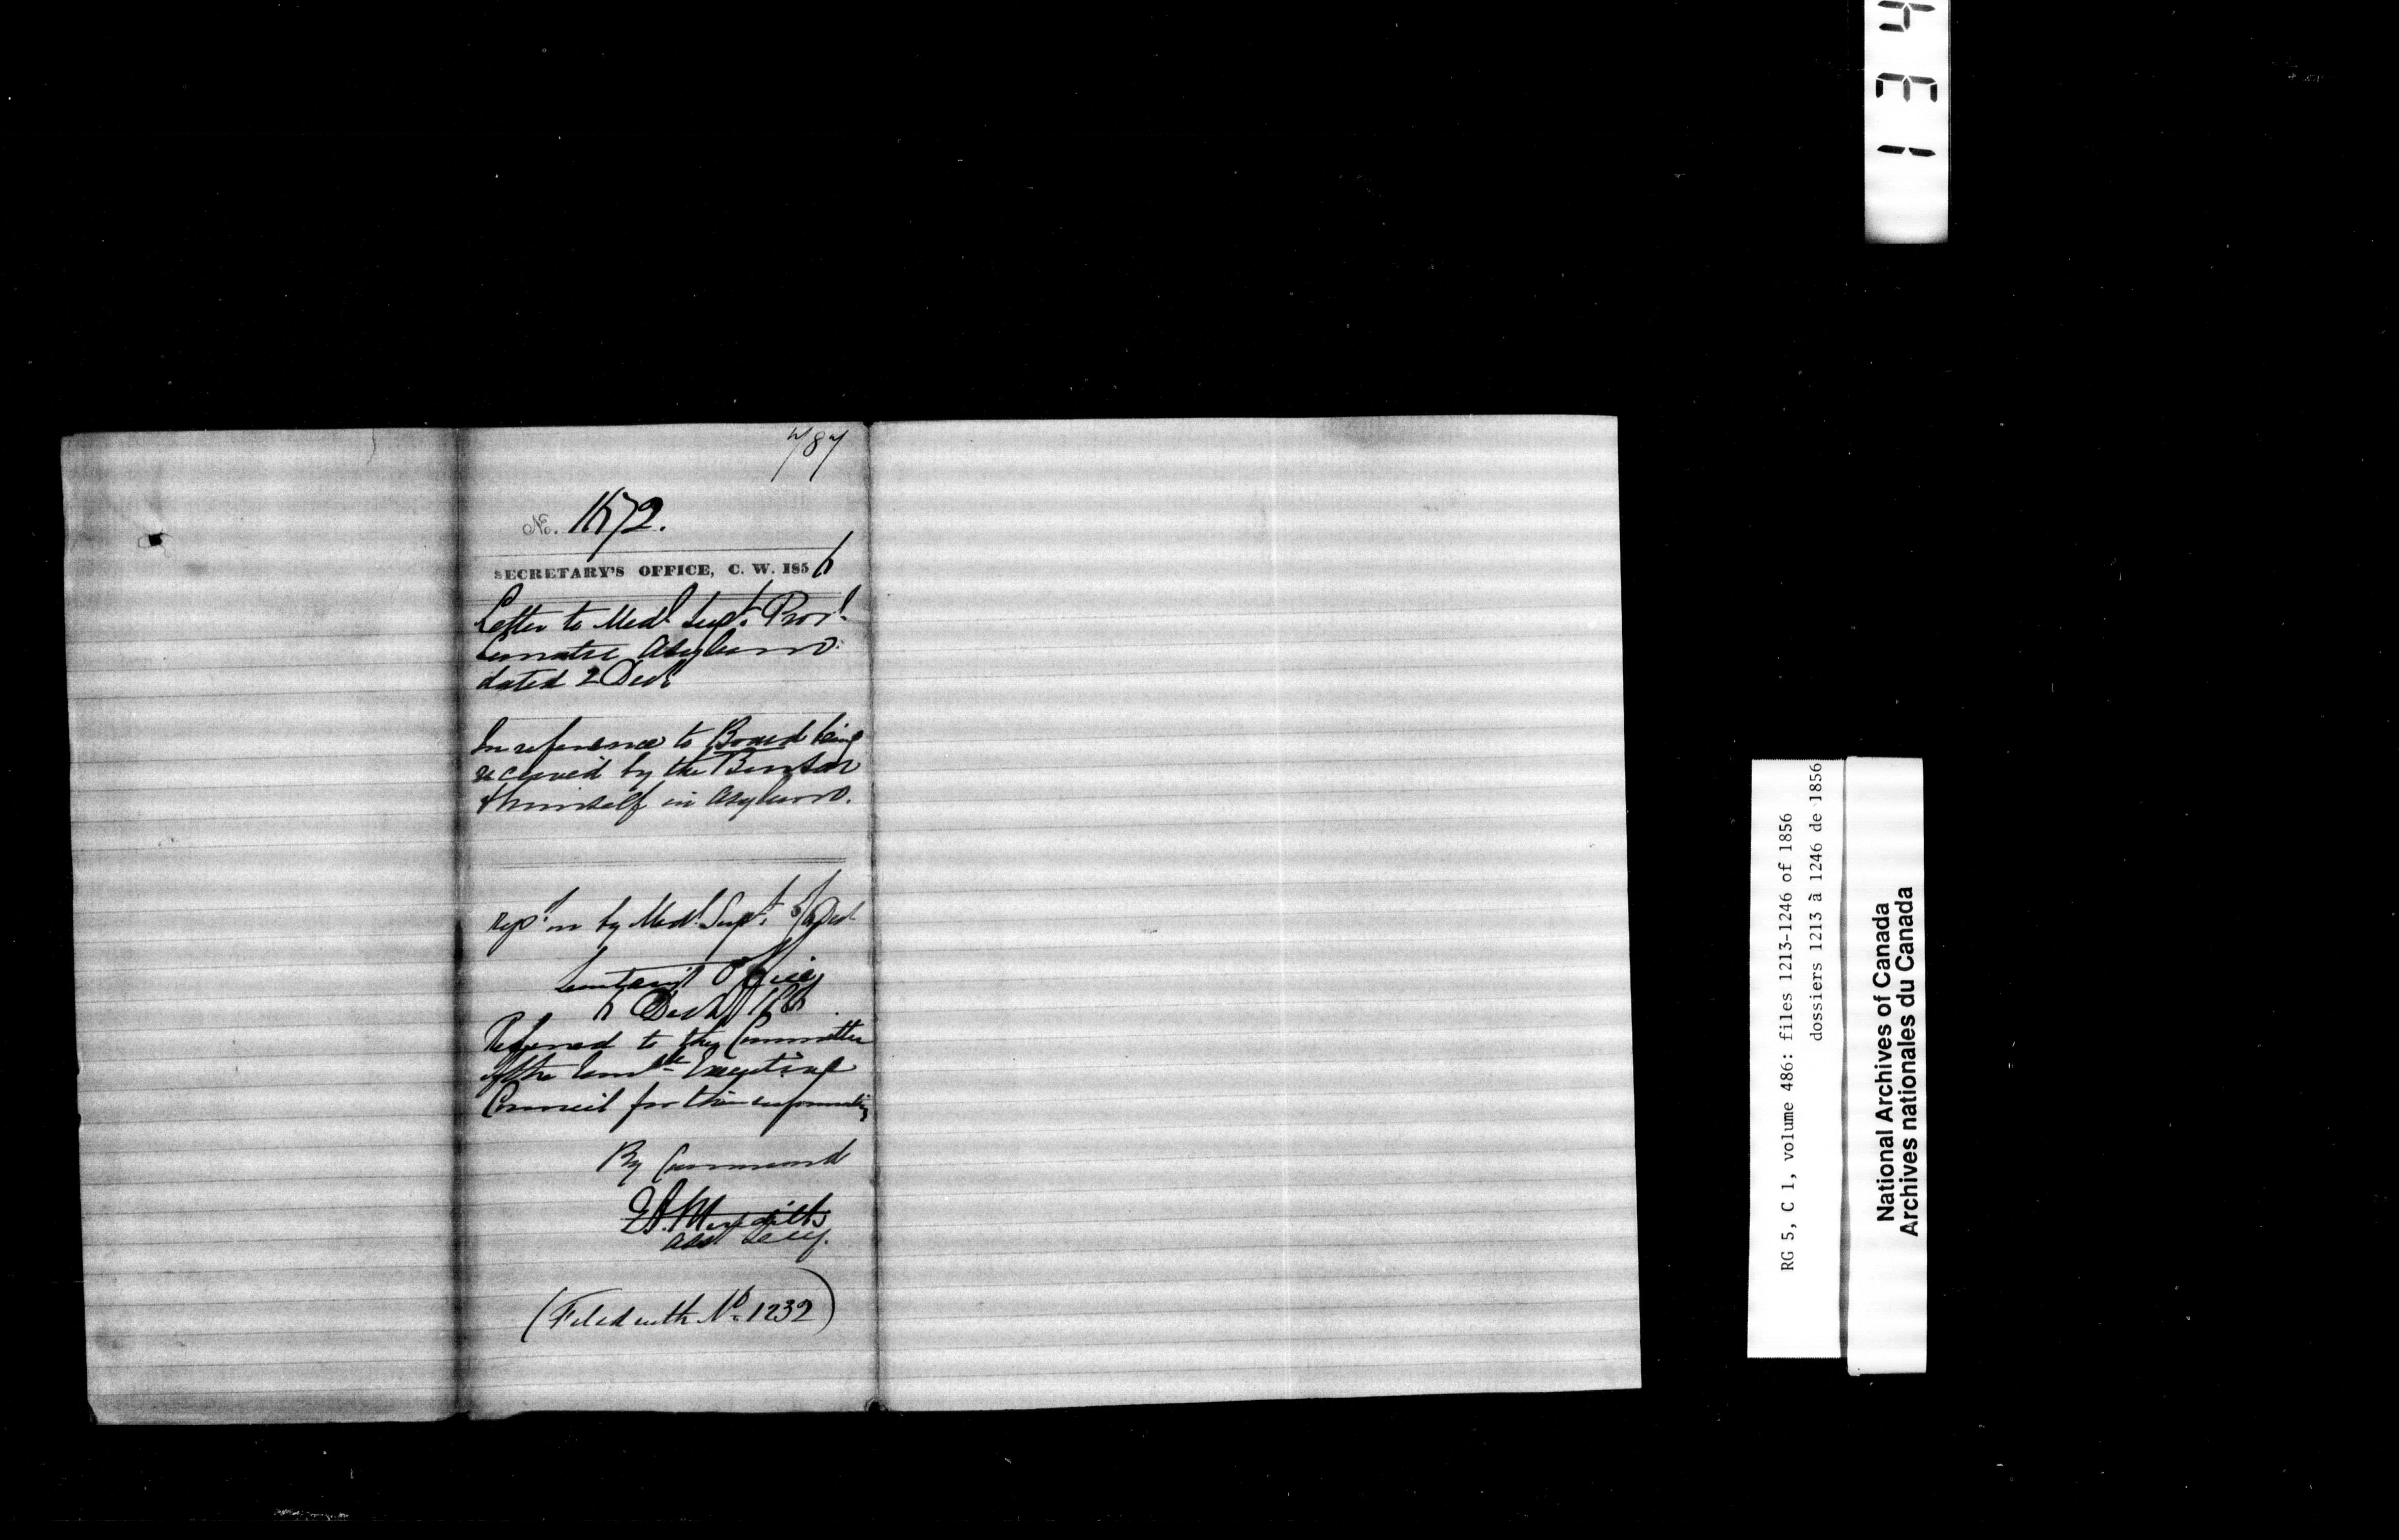 787
No. 1572.
SECRETARY'S OFFICE, C. W. 1856
Letter to Medl. Supt. Provl.
Lunatic Asylum
dated 2 Decr
In reference to Board being
received by the Bursar
& himself in Asylum.
repd. on by Medl. Supt. 5 Decr
Office
6 Decr 1856
Referred to the Committee
of the Honble Executive
Council for their information
By Command
E.A. Meredith
Asst Secy.
(Filed with No. 1232)
134
RG 5, C 1, volume 486: files 1213-1246 of 1856
dossiers 1213 à 1246 de 1856
National Archives of Canada
Archives nationales du Canada